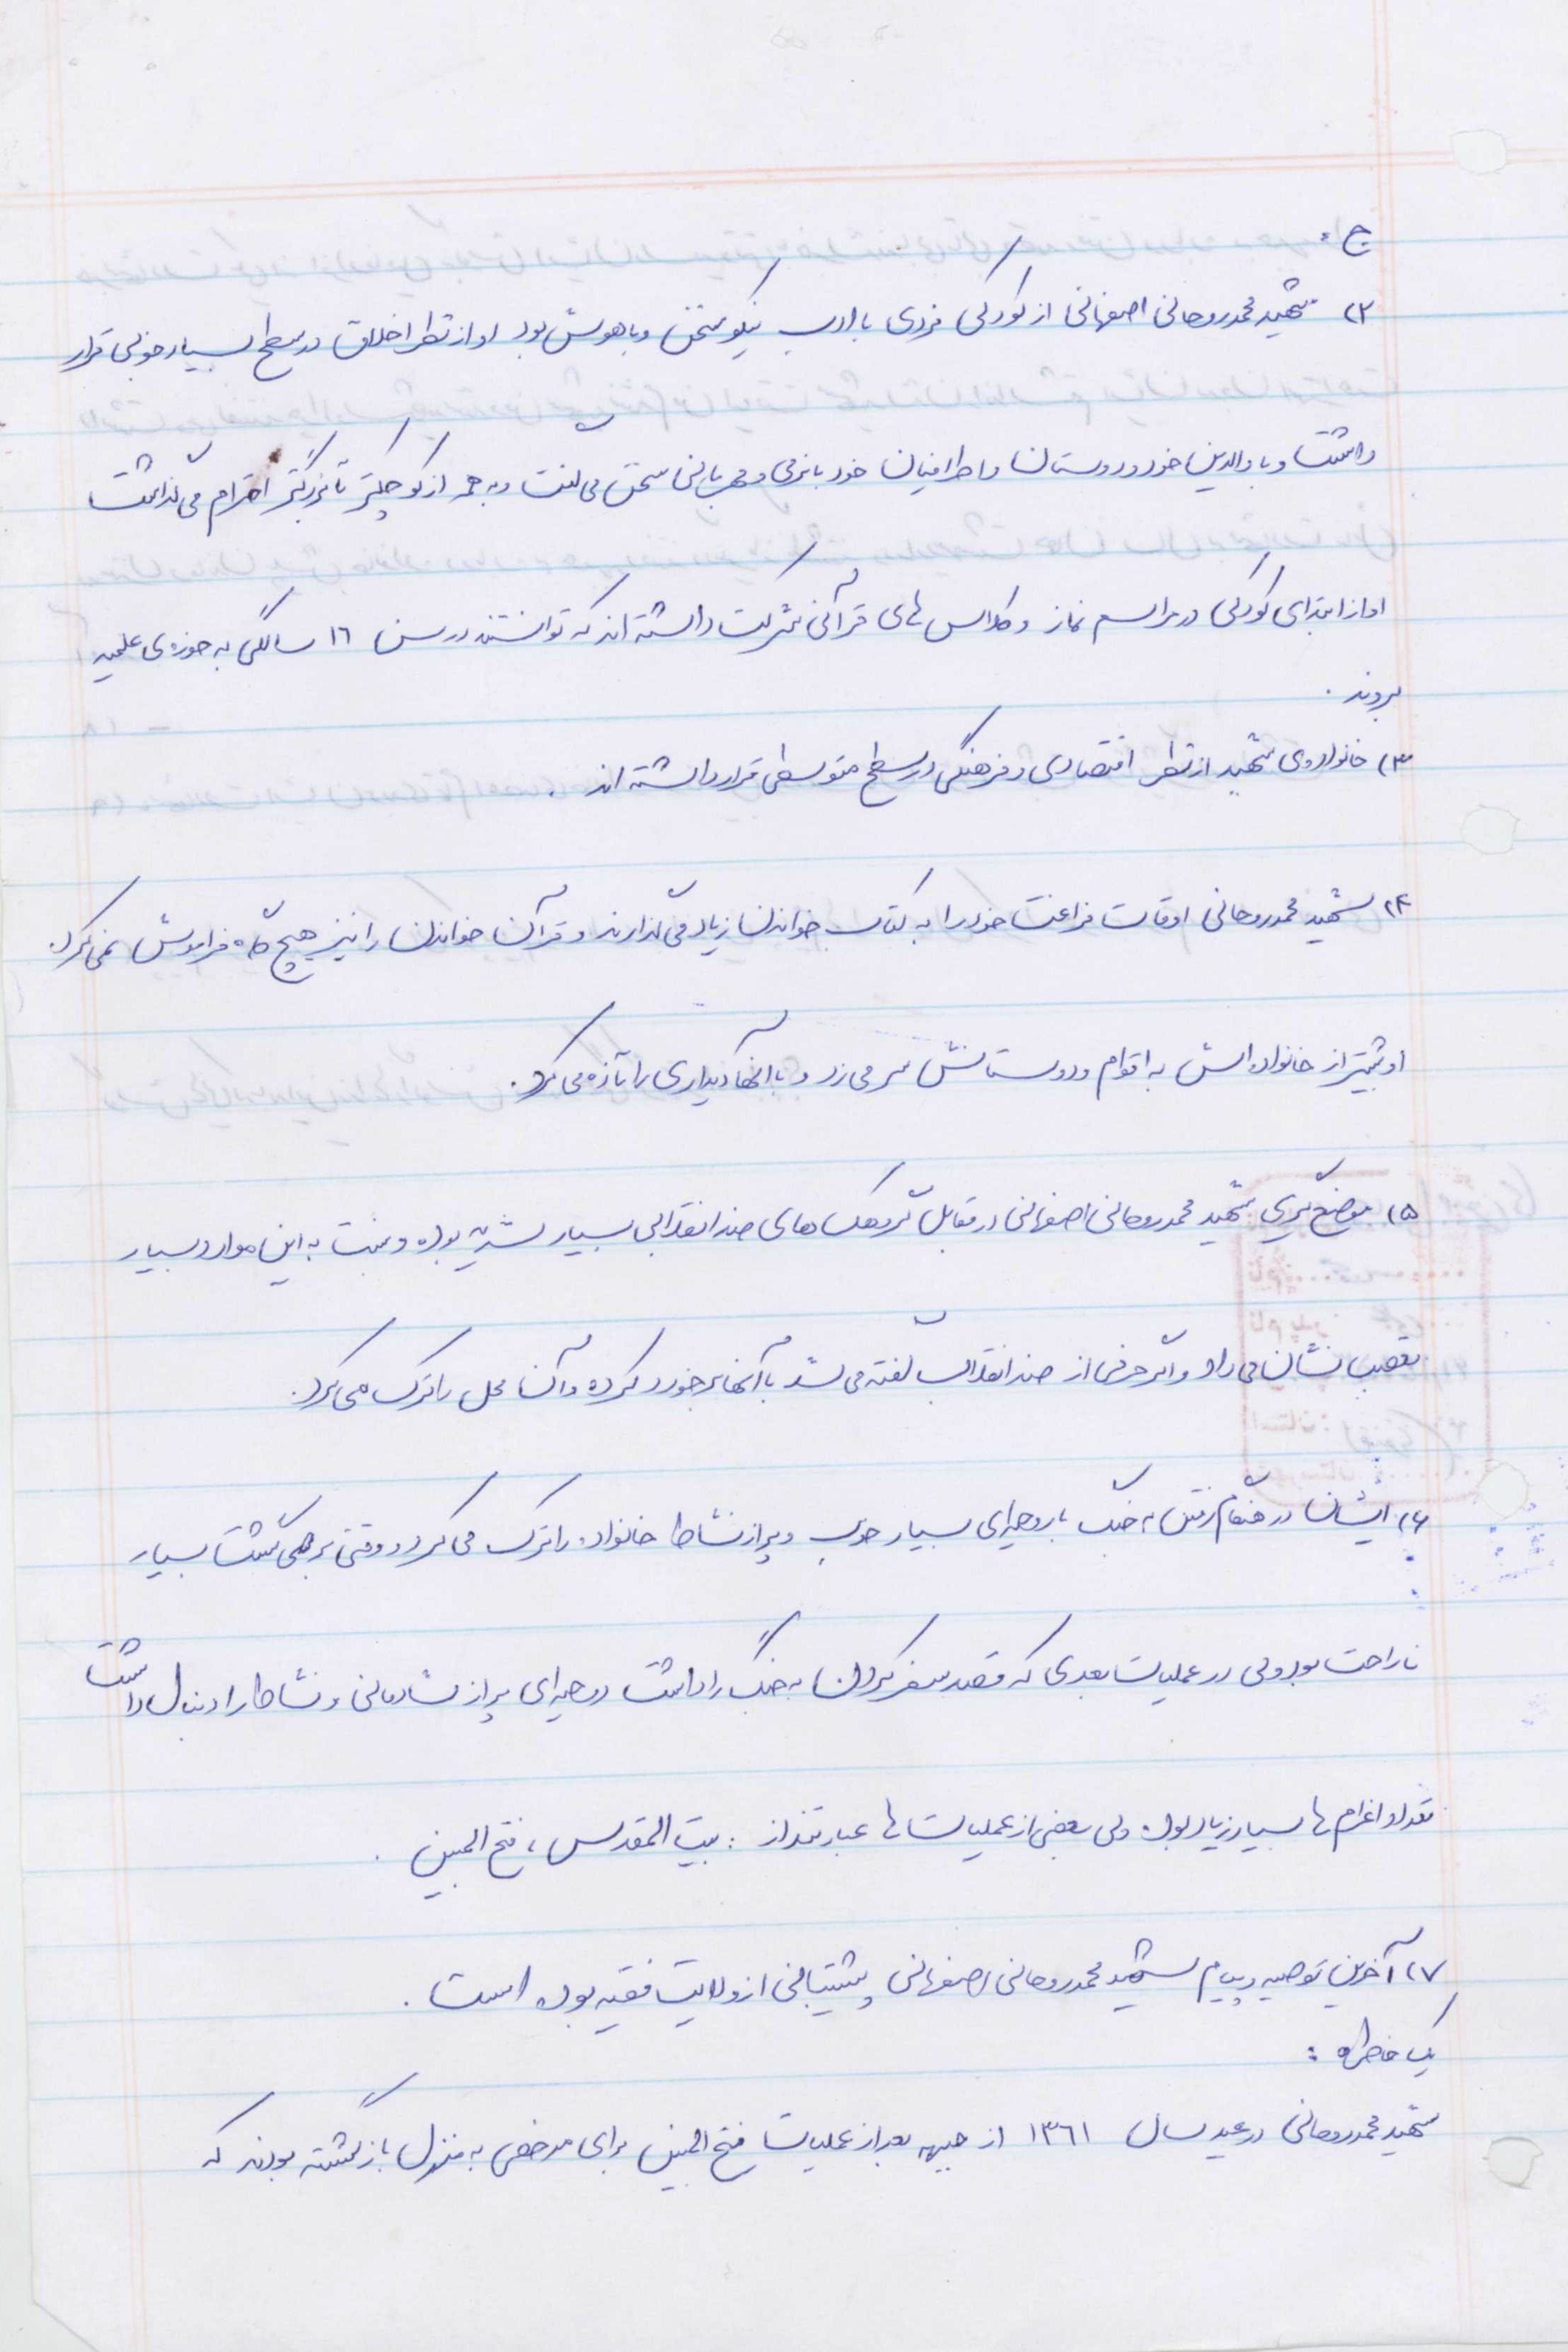 ج :
۲) شهید محمد روحانی اصفهانی از کودکی فردی با ادب نیکو سخن و با هوش بود او از نظر اخلاق در سطح بسیار خوبی قرار
داشت و با والدین خود و دوستان و اطرافیان خود با نرمی و مهربانی سخن می گفت و به همه از کوچکتر تا بزرگتر احترام می گذاشت
او از ابتدای کودکی در مراسم نماز و کلاس های قرآنی شرکت داشته اند که توانستند در سن ۱۶ سالگی به حوزه ی علمیه
بروند .
۳) خانواده ی شهید از نظر اقتصادی و فرهنگی در سطح متوسطی قرار داشته اند .
۴) شهید محمد روحانی اوقات فراغت خود را به کتاب خواندن زیاد می گذارند و قرآن خواندن را نیز هیچ گاه فراموش نمی کرد.
او بیشتر از خانواده اش به اقوام و دوستانش سر می زد و با آنها دیداری را تازه می کرد.
۵) موضع گیری شهید محمد روحانی اصفهانی در مقابل گروهک های ضد انقلابی بسیار شدید بوده و نسبت به این موارد بسیار
تعصب نشان می داد و اگر حرفی از ضد انقلاب گفته می شد با آنها برخورد کرده و آن محل را ترک می کرد.
۶) ایشان در هنگام رفتن به جنگ با روحیه ای بسیار خوب و پر از نشاط خانواده را ترک می کرد و وقتی بر می گشت بسیار
ناراحت بود ولی در عملیات بعدی که قصد سفر کردن به جنگ را داشت روحیه ای پر از شادمانی و نشاط را دنبال داشت
تعداد اعزام ها بسیار زیاد بوده ولی بعضی از عملیات ها عبارتند از : بیت المقدس ، فتح المبین .
۷) آخرین توصیه و پیام شهید محمد روحانی اصفهانی پشتیبانی از ولایت فقیه بوده است .
یک خاطره :
شهید محمد روحانی در عید سال ۱۳۶۱ از جبهه بعد از عملیات فتح المبین برای مرخصی به منزل بازگشته بودند که